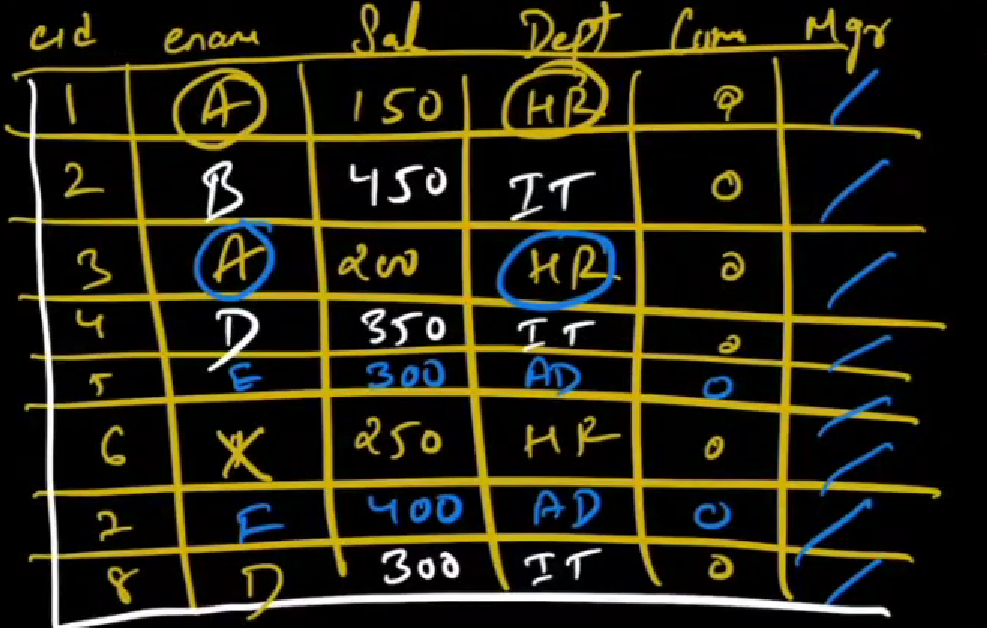 eid ename Sal Dept Comm Mgr
1 A 150 HR 0
2 B 450 IT 0
3 A 200 HR 0
4 D 350 IT 0
5 E 300 AD 0
6 X 250 HR 0
7 E 400 AD 0
8 D 300 IT 0